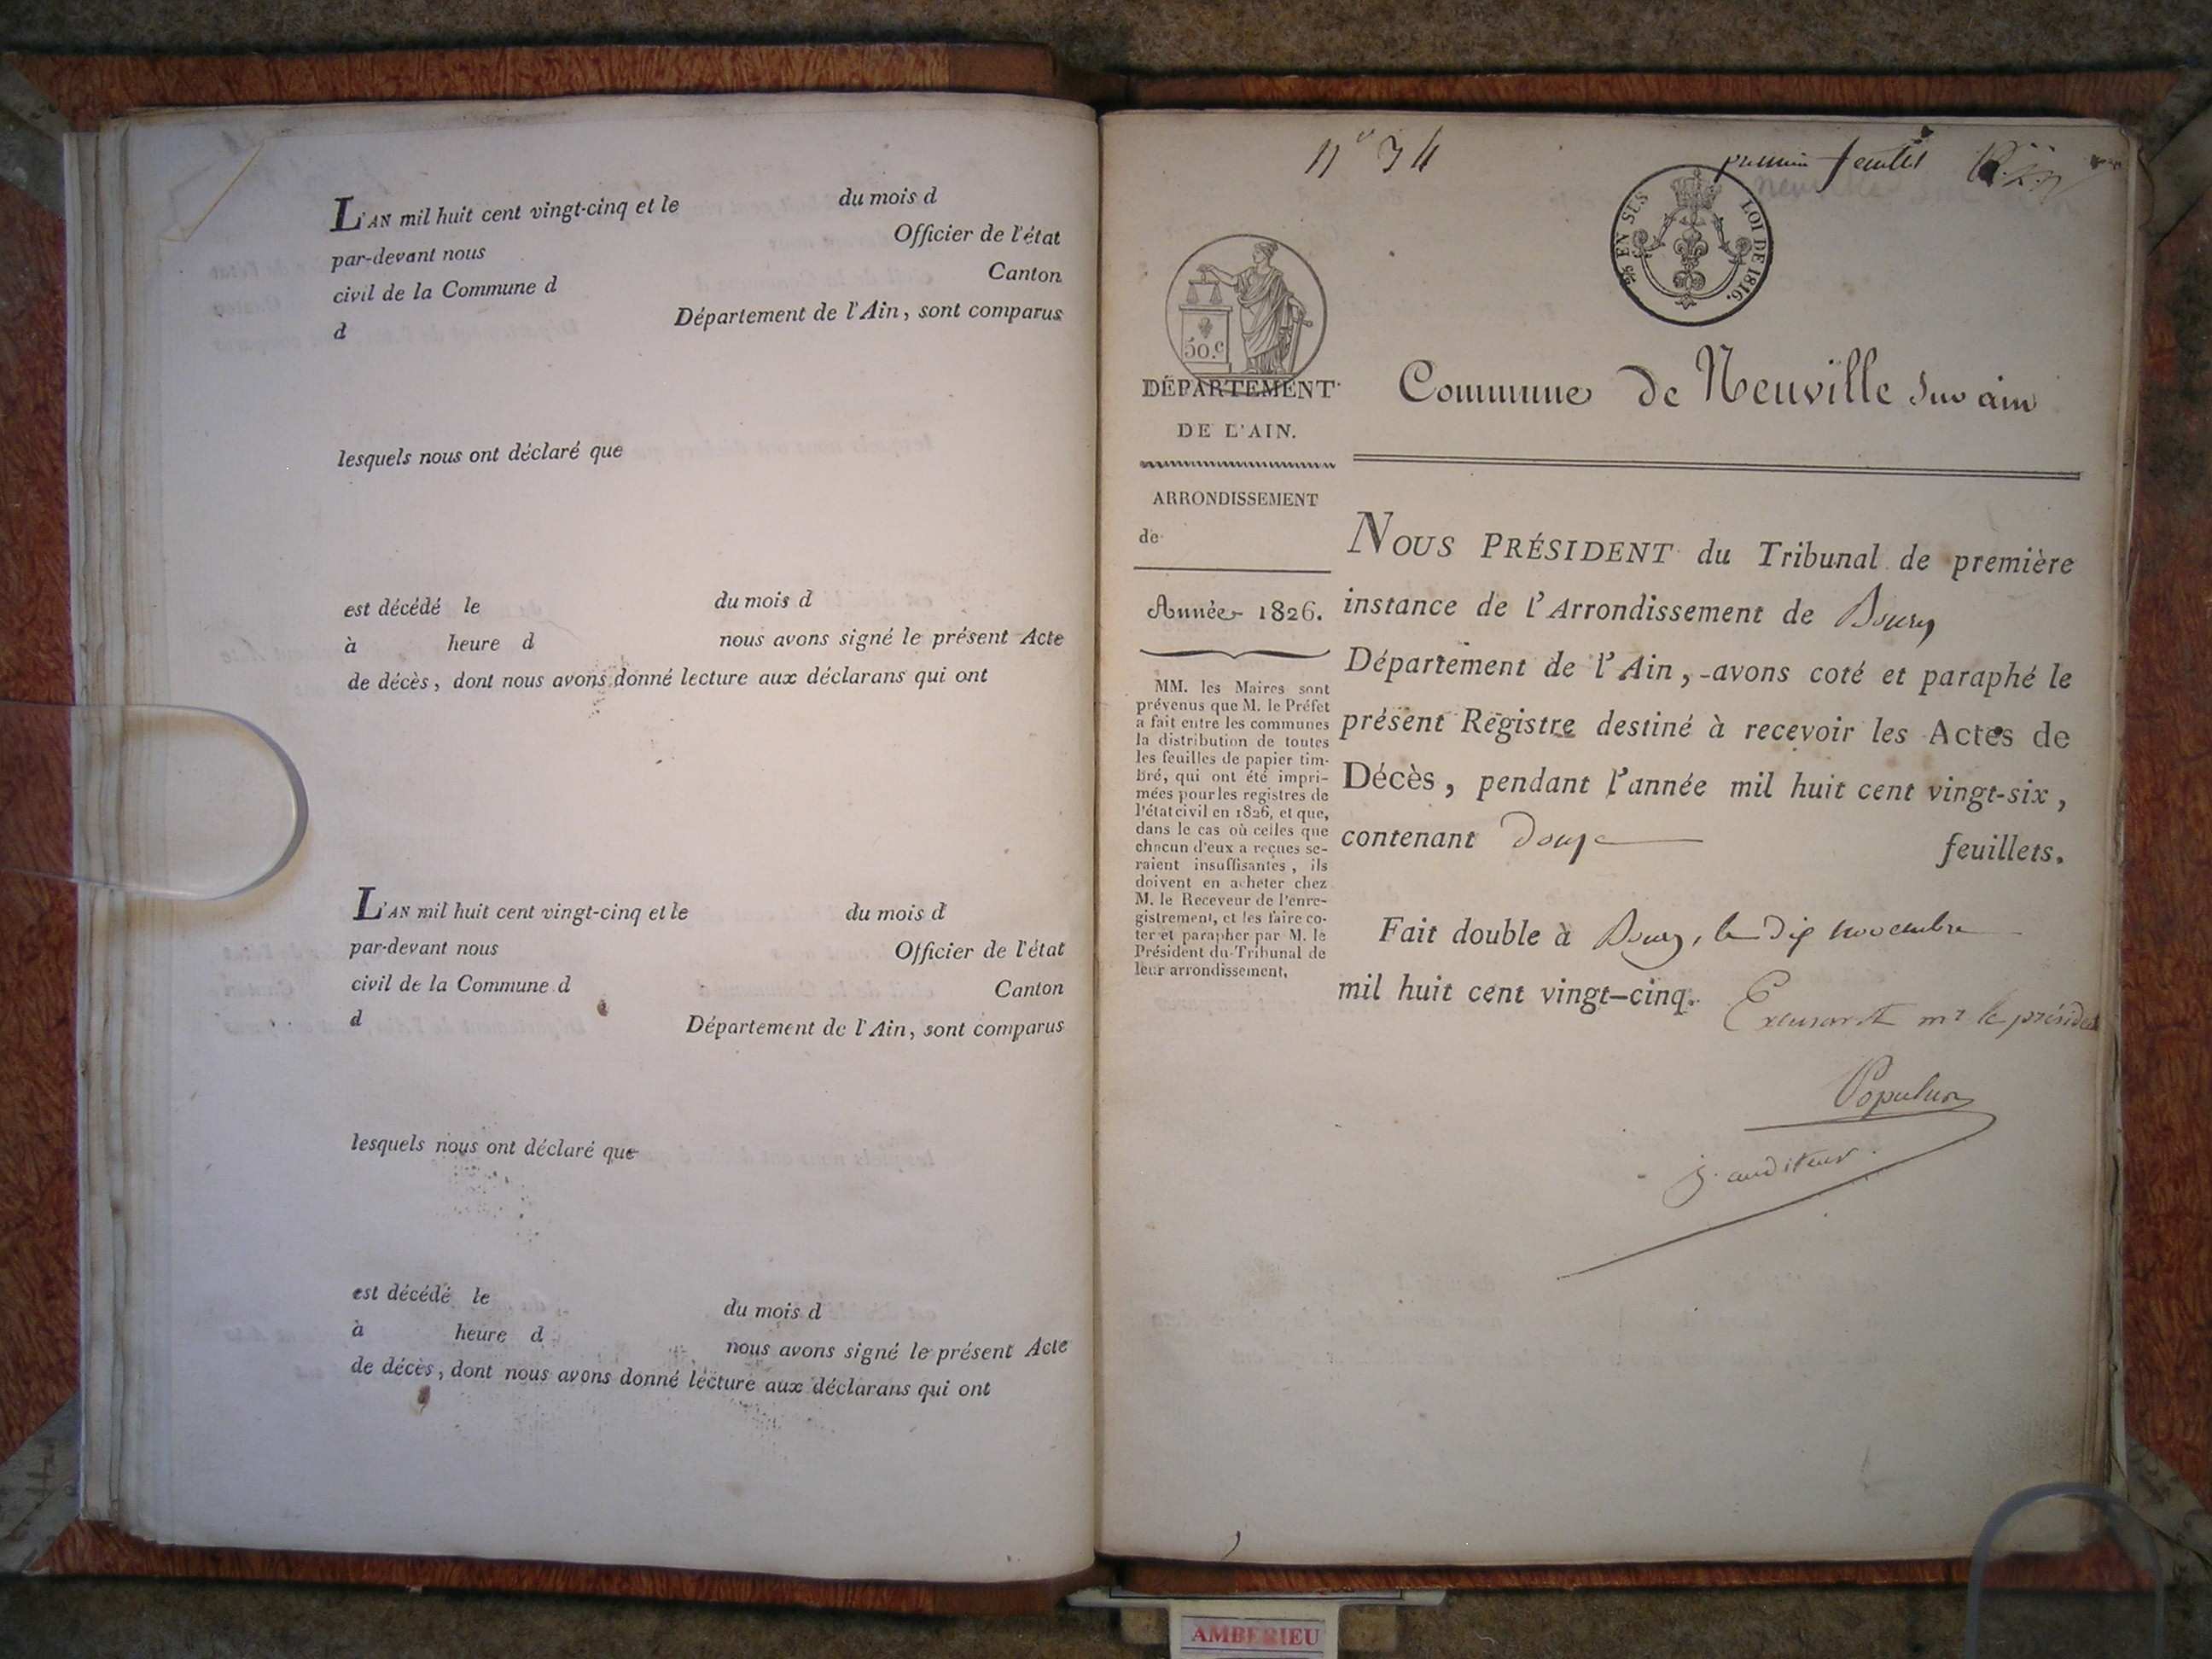 L'AN mil huit cent vingt-cinq et le du mois d
par-devant nous Officier de l'état
civil de la Commune d Canton
d Département de l'Ain, sont comparus
lesquels nous ont déclaré que
est décédé le du mois d
à heure d nous avons signé le présent Acte
de décès, dont nous avons donné lecture aux déclarans qui ont
L'AN mil huit cent vingt-cinq et le du mois d
par-devant nous Officier de l'état
civil de la Commune d Canton
d Département de l'Ain, sont comparus
lesquels nous ont déclaré que
est décédé le du mois d
à heure d nous avons signé le présent Acte
de décès, dont nous avons donné lecture aux déclarans qui ont
n° 34
premier feuillet
neuville
EN SUS
LOI DE 1816.
50.c
DÉPARTEMENT
DE L'AIN.
ARRONDISSEMENT
de
Année 1826.
MM. les Maires sont
prévenus que M. le Préfet
a fait entre les communes
la distribution de toutes
les feuilles de papier tim-
bré, qui ont été impri-
mées pour les registres de
l'état civil en 1826, et que,
dans le cas où celles que
chacun d'eux a reçues se-
raient insuffisantes, ils
doivent en acheter chez
M. le Receveur de l'enre-
gistrement, et les faire co-
ter et parapher par M. le
Président du Tribunal de
leur arrondissement.
Commune de Neuville sur ain
NOUS PRÉSIDENT du Tribunal de première
instance de l'Arrondissement de Bourg
Département de l'Ain, avons coté et paraphé le
présent Registre destiné à recevoir les Actes de
Décès, pendant l'année mil huit cent vingt-six,
contenant douze feuillets.
Fait double à Bourg, le dix novembre
mil huit cent vingt-cinq.
mr le président
Populus
j. auditeur.
AMBERIEU